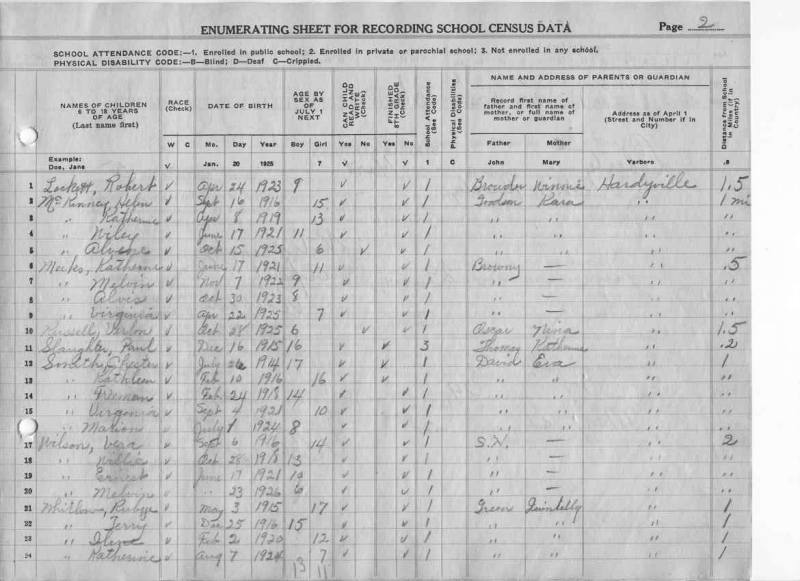 ENUMERATING SHEET FOR RECORDING SCHOOL CENSUS DATA Page 2
SCHOOL ATTENDANCE CODE:—1. Enrolled in public school; 2. Enrolled in private or parochial school; 3. Not enrolled in any school.
PHYSICAL DISABILITY CODE:—B—Blind; D—Deaf C—Crippled.
NAMES OF CHILDREN 6 TO 18 YEARS OF AGE (Last name first) RACE (Check) DATE OF BIRTH AGE BY SEX AS OF JULY 1 NEXT CAN CHILD READ AND WRITE (Check) FINISHED 8TH GRADE (Check) School Attendance (See Code) Physical Disabilities (See Code) NAME AND ADDRESS OF PARENTS OR GUARDIAN Distance from School in Miles (if in Country)
Record first name of father and first name of mother, or full name of mother or guardian Address as of April 1 (Street and Number if in City)
W C Mo. Day Year Boy Girl Yes No Yes No Father Mother
Example: Doe, Jane √ Jan. 20 1925 7 √ √ 1 C John Mary Yarboro .8
1 Lockett, Robert √ Apr 24 1923 9 √ √ 1 Browder Winnie Hardyville 1.5
2 McKinney Helen √ Sept 16 1916 15 √ √ 1 Goodson Kara " 1 mi
3 " Katherine √ Apr 8 1919 13 √ √ 1 " " " "
4 " Wiley √ June 17 1921 11 √ √ 1 " " " "
5 " √ Oct 15 1925 6 √ √ 1 " " " "
6 Meeks, Katherine √ June 17 1921 11 √ √ 1 Browny — " .5
7 " Melvin √ Nov 7 1922 9 √ √ 1 " — "
8 " Alvis √ Oct 30 1923 8 √ √ 1 " — "
9 " Virginia √ Apr 22 1925 7 √ √ 1 " — "
10 Russell, Verlon √ Oct 28 1925 6 √ √ 1 Oscar Nina " 1.5
11 Slaughter, Paul √ Dec 16 1915 16 √ √ 3 Thomas Katherine " .2
12 Smith, Chester √ July 26 1914 17 √ √ 1 David Eva " 1
13 " Kathleen √ Feb 10 1916 16 √ √ 1 " " " "
14 " Freeman √ Feb 24 1918 14 √ √ 1 " " " "
15 " Virginia √ Sept 4 1921 10 √ √ 1 " " " "
" Marion √ July 1 1924 8 √ √ 1 " " " "
17 Wilson, Vera √ Sept 6 1916 14 √ √ 1 S.N. — " 2
18 " Willie √ Oct 28 1918 13 √ √ 1 " — " "
19 " Ernest √ June 17 1921 √ √ 1 " — " "
20 " Melvin √ " 23 1926 6 √ √ 1 " — " "
21 Whitlow, Rubye √ May 3 1915 17 √ √ 1 Green " 1
22 " Terry √ Dec 25 1916 15 √ √ 1 " " " 1
23 " √ Feb 2 1920 12 √ √ 1 " " " 1
24 " Katherine √ Aug 7 1924 7 √ √ 1 " " " 1
13 11